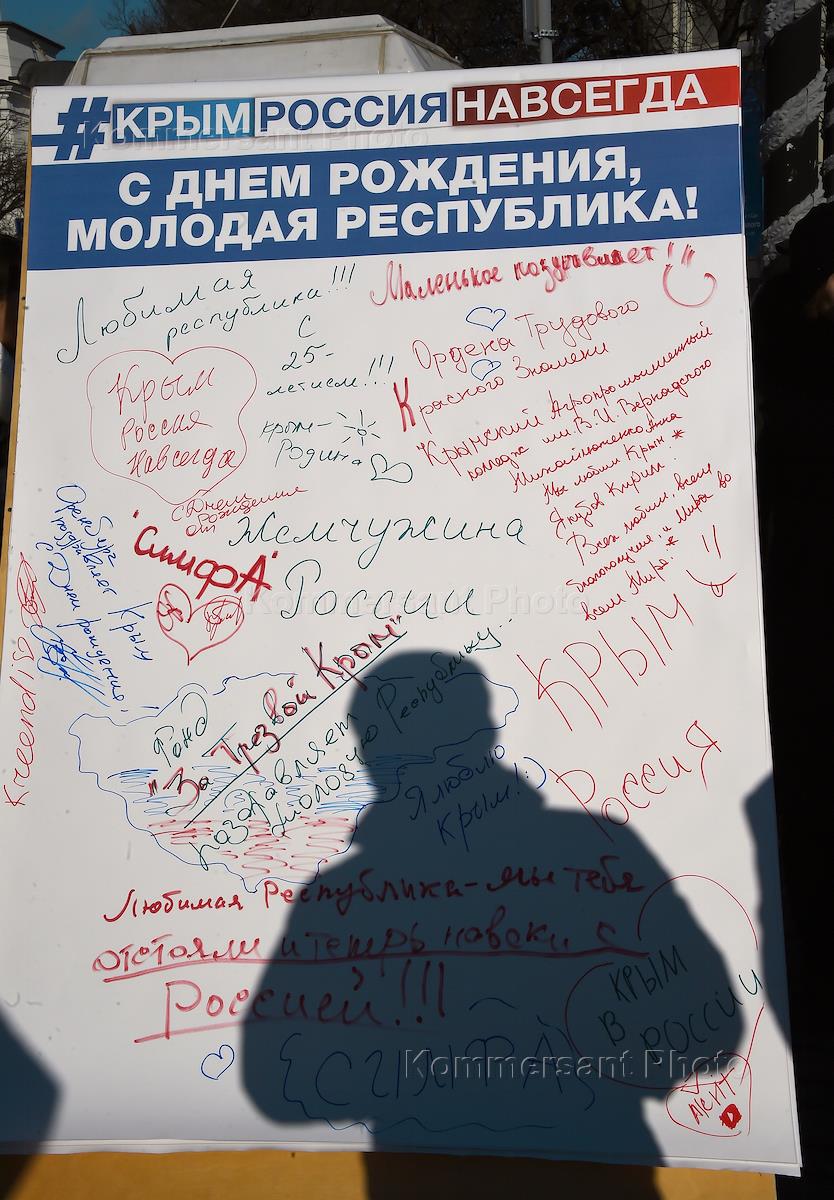 #КРЫМРОССИЯНАВСЕГДА
С ДНЕМ РОЖДЕНИЯ,
МОЛОДАЯ РЕСПУБЛИКА!
Любимая
республика!!!
С
25-
летием!!!
Крым-
Родина
Маленькое поздравляет!!!
Ордена Трудового
Красного Знамени
"Крымский Агропромышленный
колледж им. В.И. Вернадского
Михайличенко Анна
Мы любим Крым *
Якубов Кирим.
Всех любим, всем
благополучия и Мира во
всем Мира! *
Крым
Россия
Навсегда
с Днем
рождения
от
"СлифА"
Жемчужина
России
Оренбург
поздравляет Крым
с Днем рождения!
Kreendis
Фонд
"За Трезвой Крым"
поздравляет
молодую Республику..
Я люблю
Крым!:)
КРЫМ
Россия
Любимая Республика-мы тебя
отстояли и теперь навеки с
Россией!!!
КРЫМ
В
РОССИИ
Kommersant Photo
Kommersant Photo
Kommersant Photo